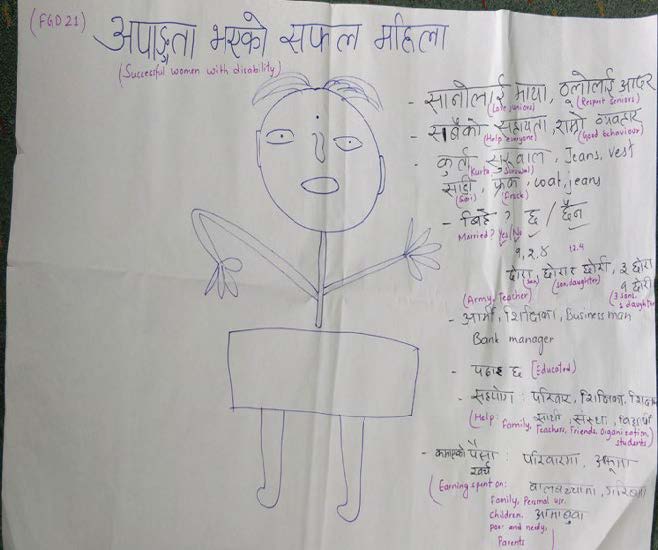 (FGD 21)
अपाङ्गता भएको सफल महिला
(Successful women with disability)
- सानोलाई माया, ठूलोलाई आदर
(Love juniors) (Respect seniors)
- सबैको सहायता, राम्रो व्यवहार
(Help everyone) (Good behaviour)
- कुर्ता सुरुवाल, Jeans, vest
(Kurta, Suruwal)
साडी, फ्रक, coat, jeans
(Sari) (Frock)
- बिहे ? छ / छैन
Married? Yes/No
१, २, ४ 1,2,4
छोरा, छोरा र छोरी, ३ छोरा
(son) (son, daughter) १ छोरी
(Army, Teacher) (3 sons, 1 daughter)
- आर्मी, शिक्षिका, Business man
Bank manager
- पढेको छ [Educated]
- सहयोग : परिवार, शिक्षिका,
साथी, संस्था, विद्यार्थी
(Help: Family, Teachers, Friends, Organization, students)
- कमाएको पैसा : परिवारमा,
खर्च
(Earning spent on: बालबच्चामा,
Family, Personal use,
children, आमाबुवा
poor and needy,
Parents )